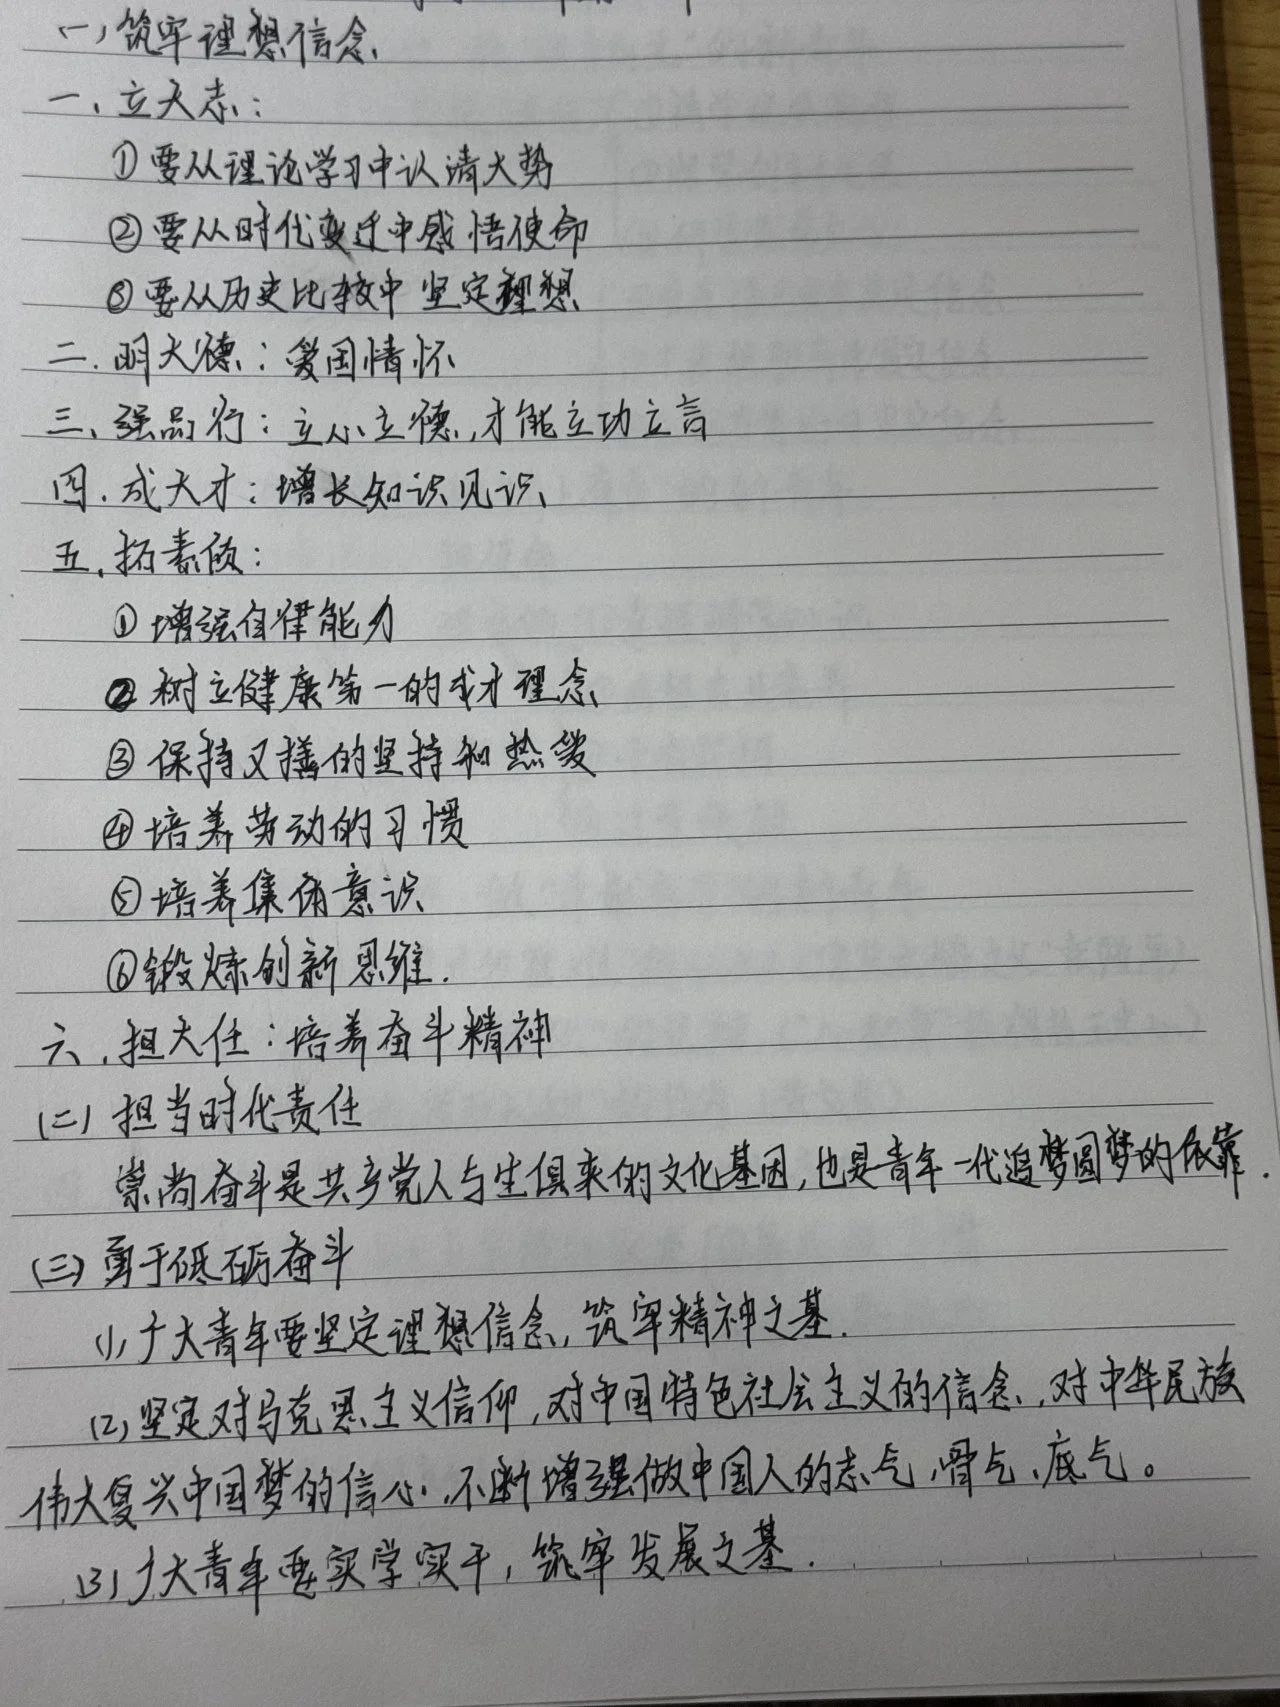 (一)筑牢理想信念
一、立大志:
①要从理论学习中认清大势
②要从时代变迁中感悟使命
③要从历史比较中坚定理想
二.明大德:爱国情怀
三、强品行:立心立德,才能立功立言
四.成大才:增长知识见识
五.拓素质:
①增强自律能力
②树立健康第一的成才理念
③保持文艺的坚持和热爱
④培养劳动的习惯
⑤培养集体意识
⑥锻炼创新思维.
六.担大任:培养奋斗精神
(二)担当时代责任
崇尚奋斗是共产党人与生俱来的文化基因,也是青年一代追梦圆梦的依靠.
(三)勇于砥砺奋斗
(1)广大青年要坚定理想信念,筑牢精神之基.
(2)坚定对马克思主义信仰,对中国特色社会主义的信念,对中华民族
伟大复兴中国梦的信心,不断增强做中国人的志气,骨气、底气。
(3)广大青年要实学实干,筑牢发展之基.